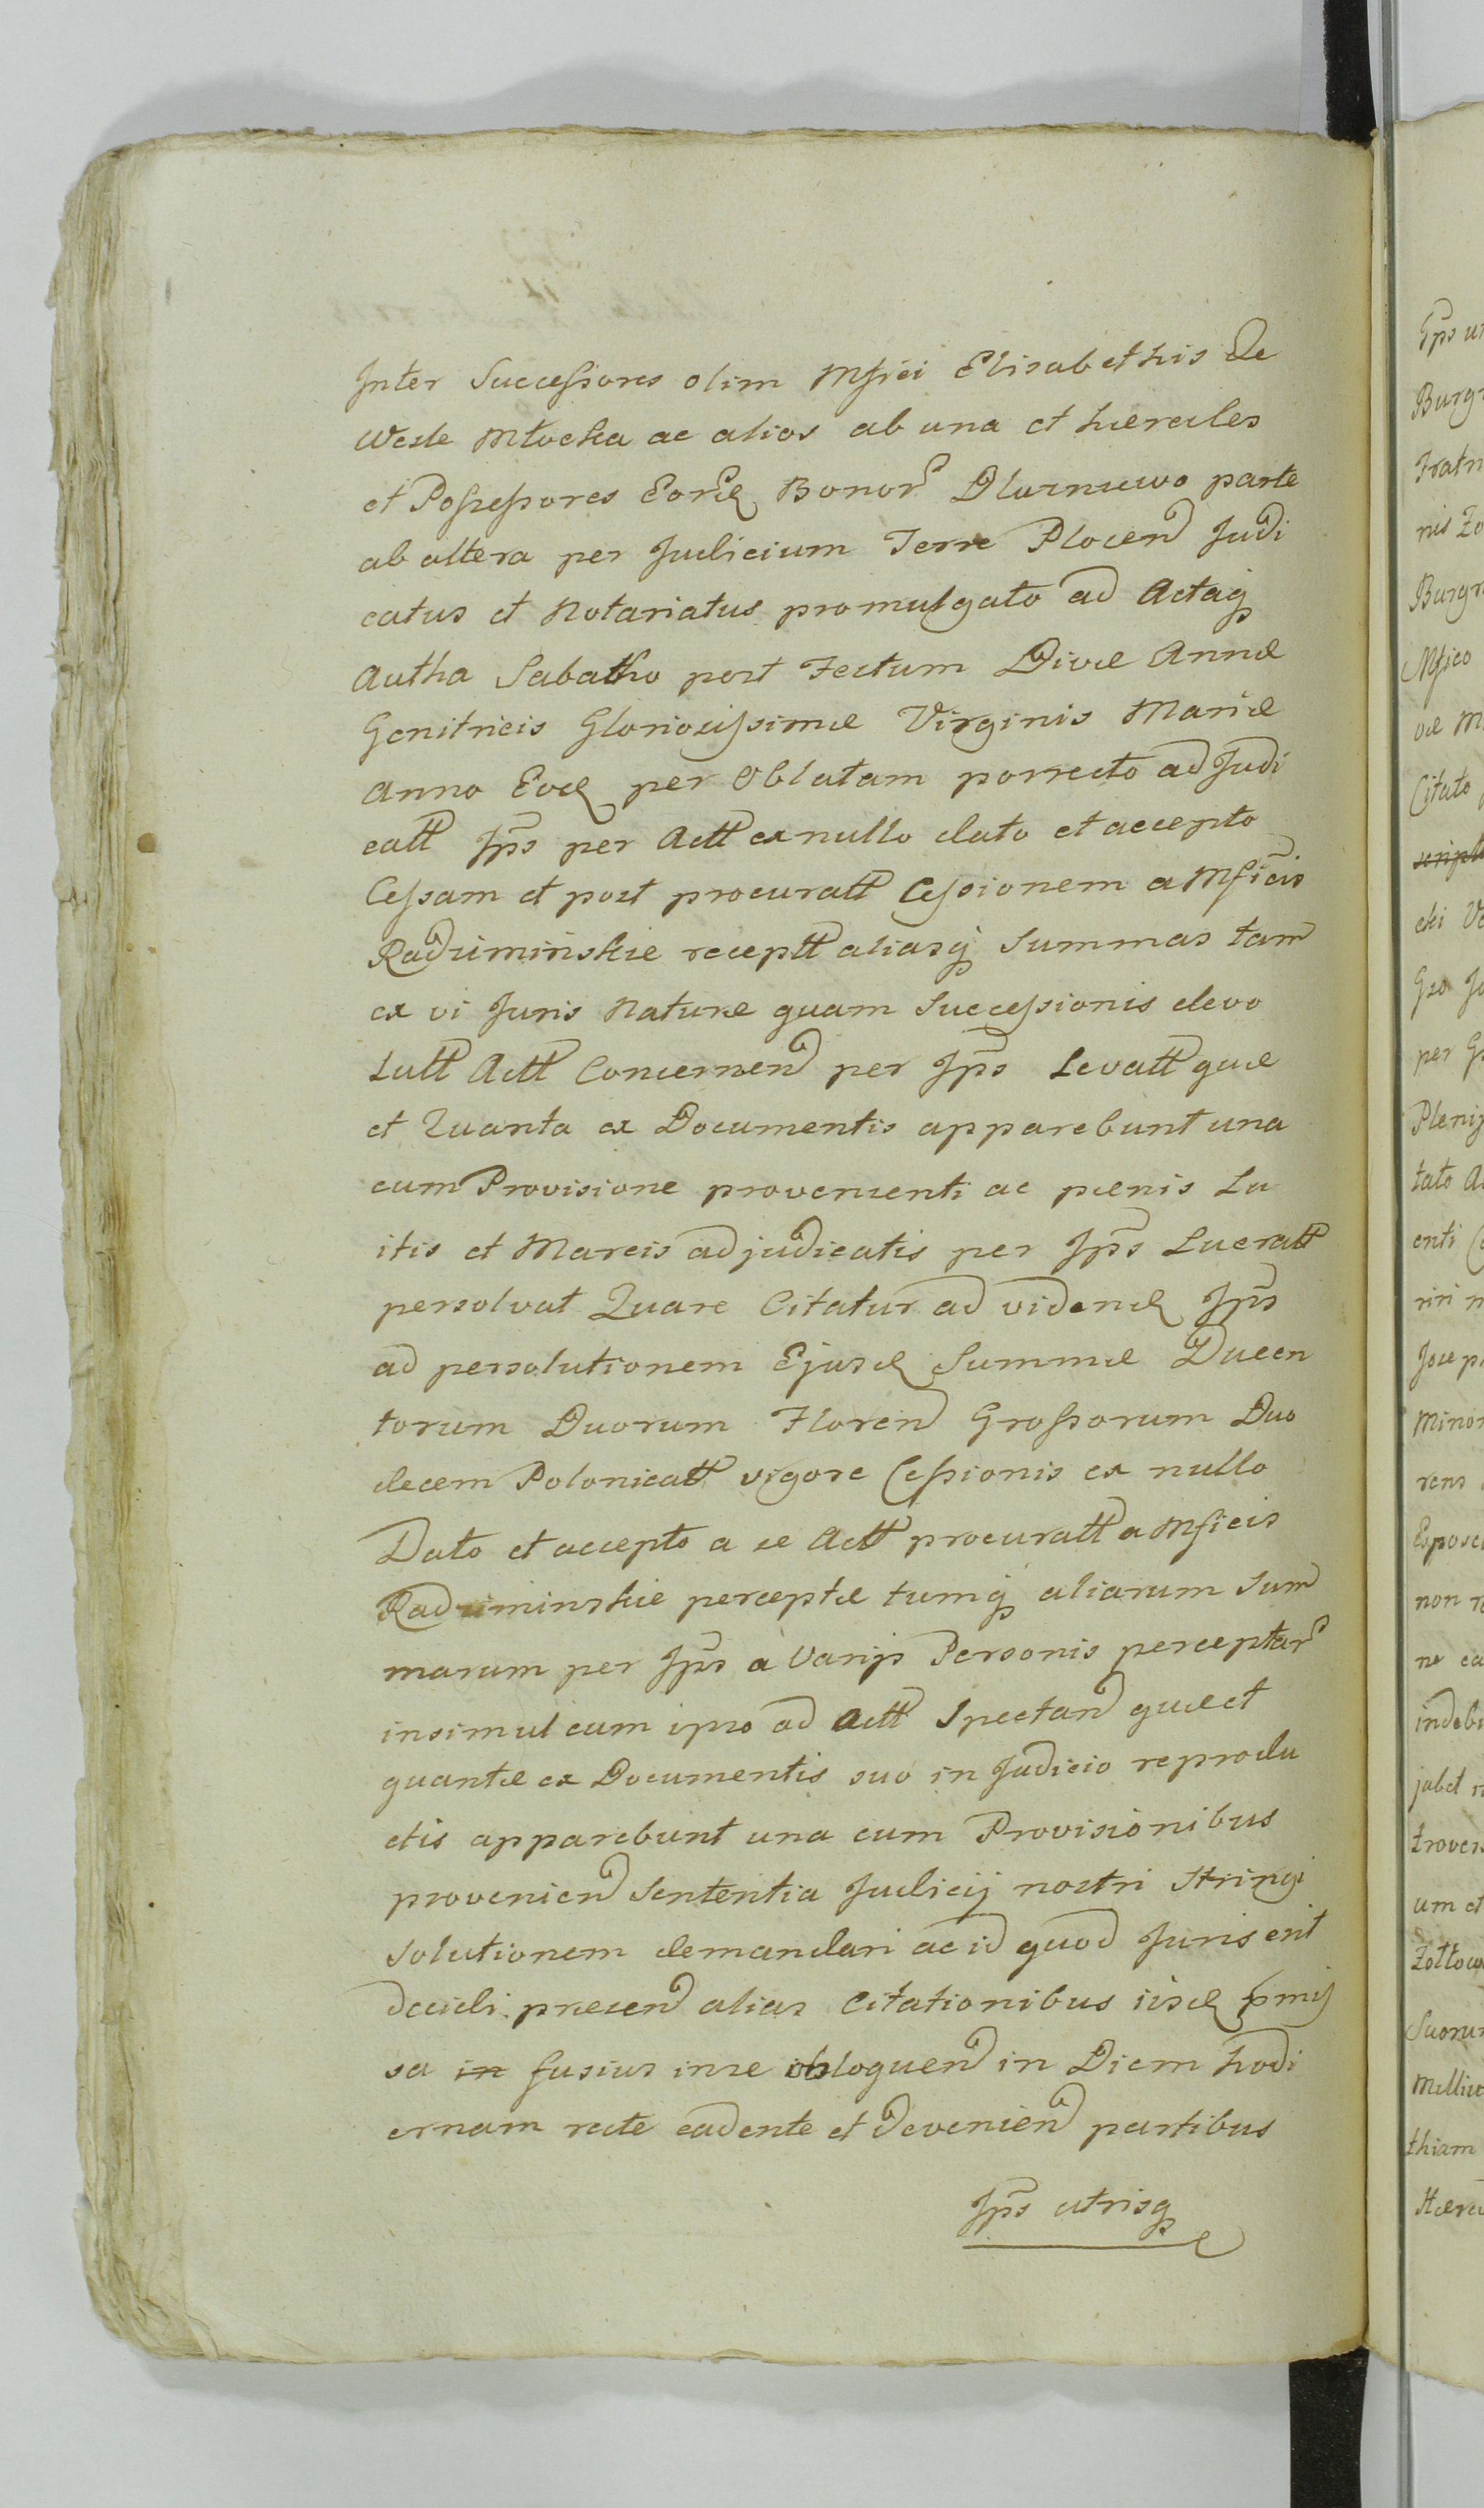 Inter Successores olim Mfici Elisabethis de
Wesle Młocka ac alios ab una et hæredes
et Possessores Eord Bonor Dłurniewo parte
ab altera per Judicium Terre Plocen Judi
catus et Notariatus promulgato ad Actaq
Autha Sabatho post Festum Divæ Annæ
Genitricis Gloriosissimæ Virginis Mariæ
Anno Eod per Oblatam porrecto adJudi
catt Jps per Actt ex nullo dato et accepto
Cessam et post procuratt Cessionem a Mficis
Radziminskie receptt aliasq Summas tam
ex vi Juris Naturæ quam Successionis devo
lutt Actt Concernen per Jps Levatt quæ
et Quanta ex Documentis apparebunt una
cum Provisione provenienti ac pœnis Lu
itis et Marcis adjudicatis per Jps Lucratt
persolvat Quare Citatur ad vidend Jps
ad persolutionem Ejusd Summæ Ducen
torum Duorum Floren Grossorum Duo
decem Polonicatt vigore Cessionis ex nullo
Dato et accepto a se Actt procuratt a Mficis
Radziminskie perceptæ tumq aliarum Sum
marum per Jps a Varijs Personis perceptar
insimul cum ipso ad Actt Spectan quæ et
quantæ ex Documentis suo in Judicio reprodu
ctis apparebunt una cum Provisionibus
provenien Sententia Judicij nostri Stringi
Solutionem demandari ac id quod Juris erit
decidi presen alias Citationibus iisd pmis
sa in fusius in se obloquen in Diem hodi
ernam rite cadente et devenien partibus
Jps utrisq
Jps
Burg
Fratn
nis
Burgr
Mfico
væ
Citato
script
cki
Gso
per
Pleni
tato
enti
riri
Josep
Minor
rens
Exposc
non
ne
indebi
jubet
trovers
um et
Zołtow
Suorum
Millia
thiam
Hæred